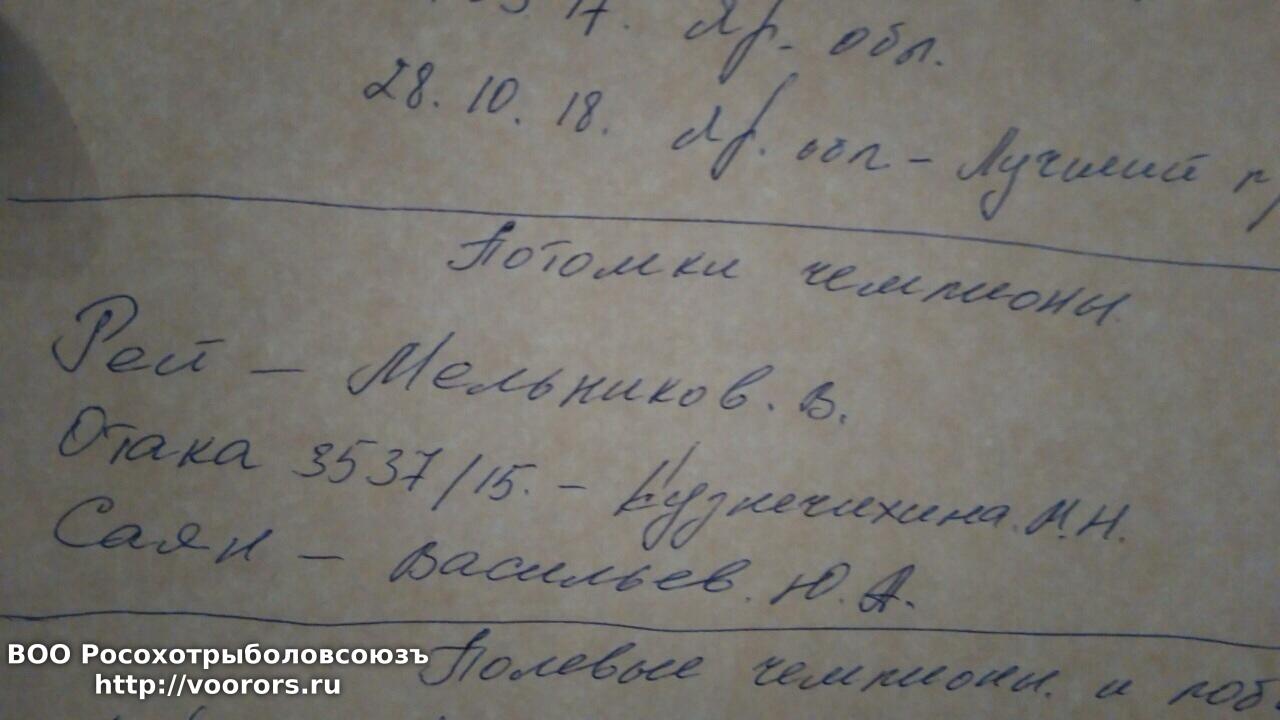 17. Яр. обл.
28. 10. 18. Яр. обл - Лучший
Потомки чемпионы.
Рей - Мельников. В.
Отака 3537/15. - Кузнечихина. М.Н.
Саян - Васильев. Ю. А.
Полевые чемпионы. и поб.
ВОО Росохотрыболовсоюзъ
http://voorors.ru